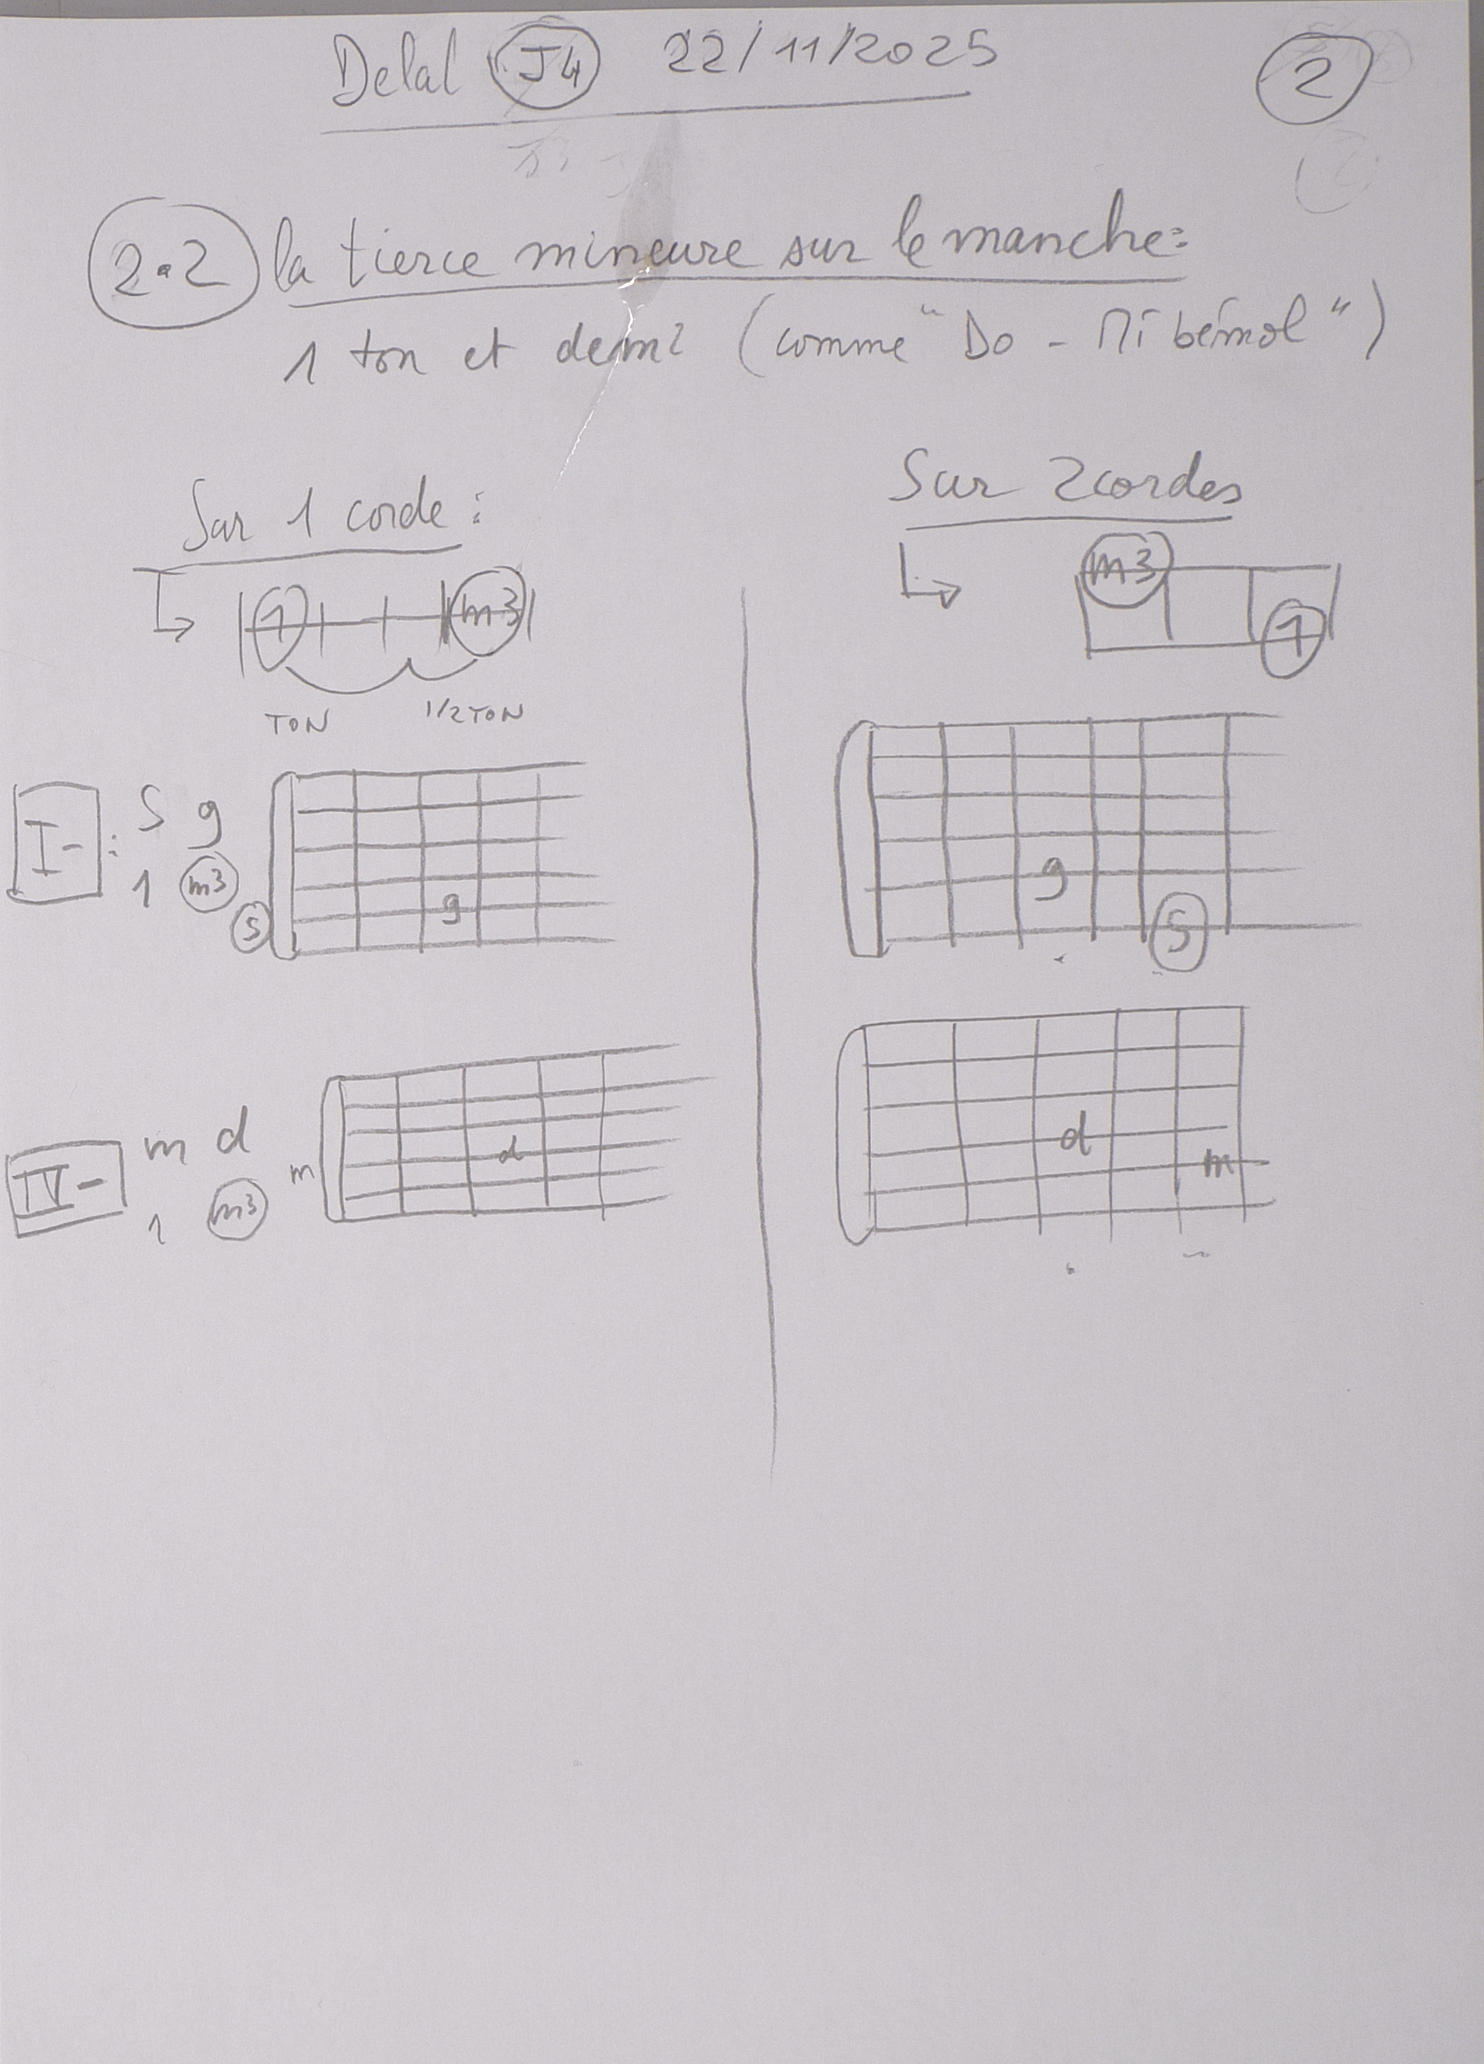 Delal J4 22/11/2025
2
2.2 la tierce mineure sur le manche:
1 ton et demi (comme "Do - Mi bémol")
Sur 1 corde :
1 m3
TON 1/2 TON
Sur 2 cordes
m3
1
I- : S g
1 m3
S
g
g
S
IV- m d
1 m3
m
d
d
m